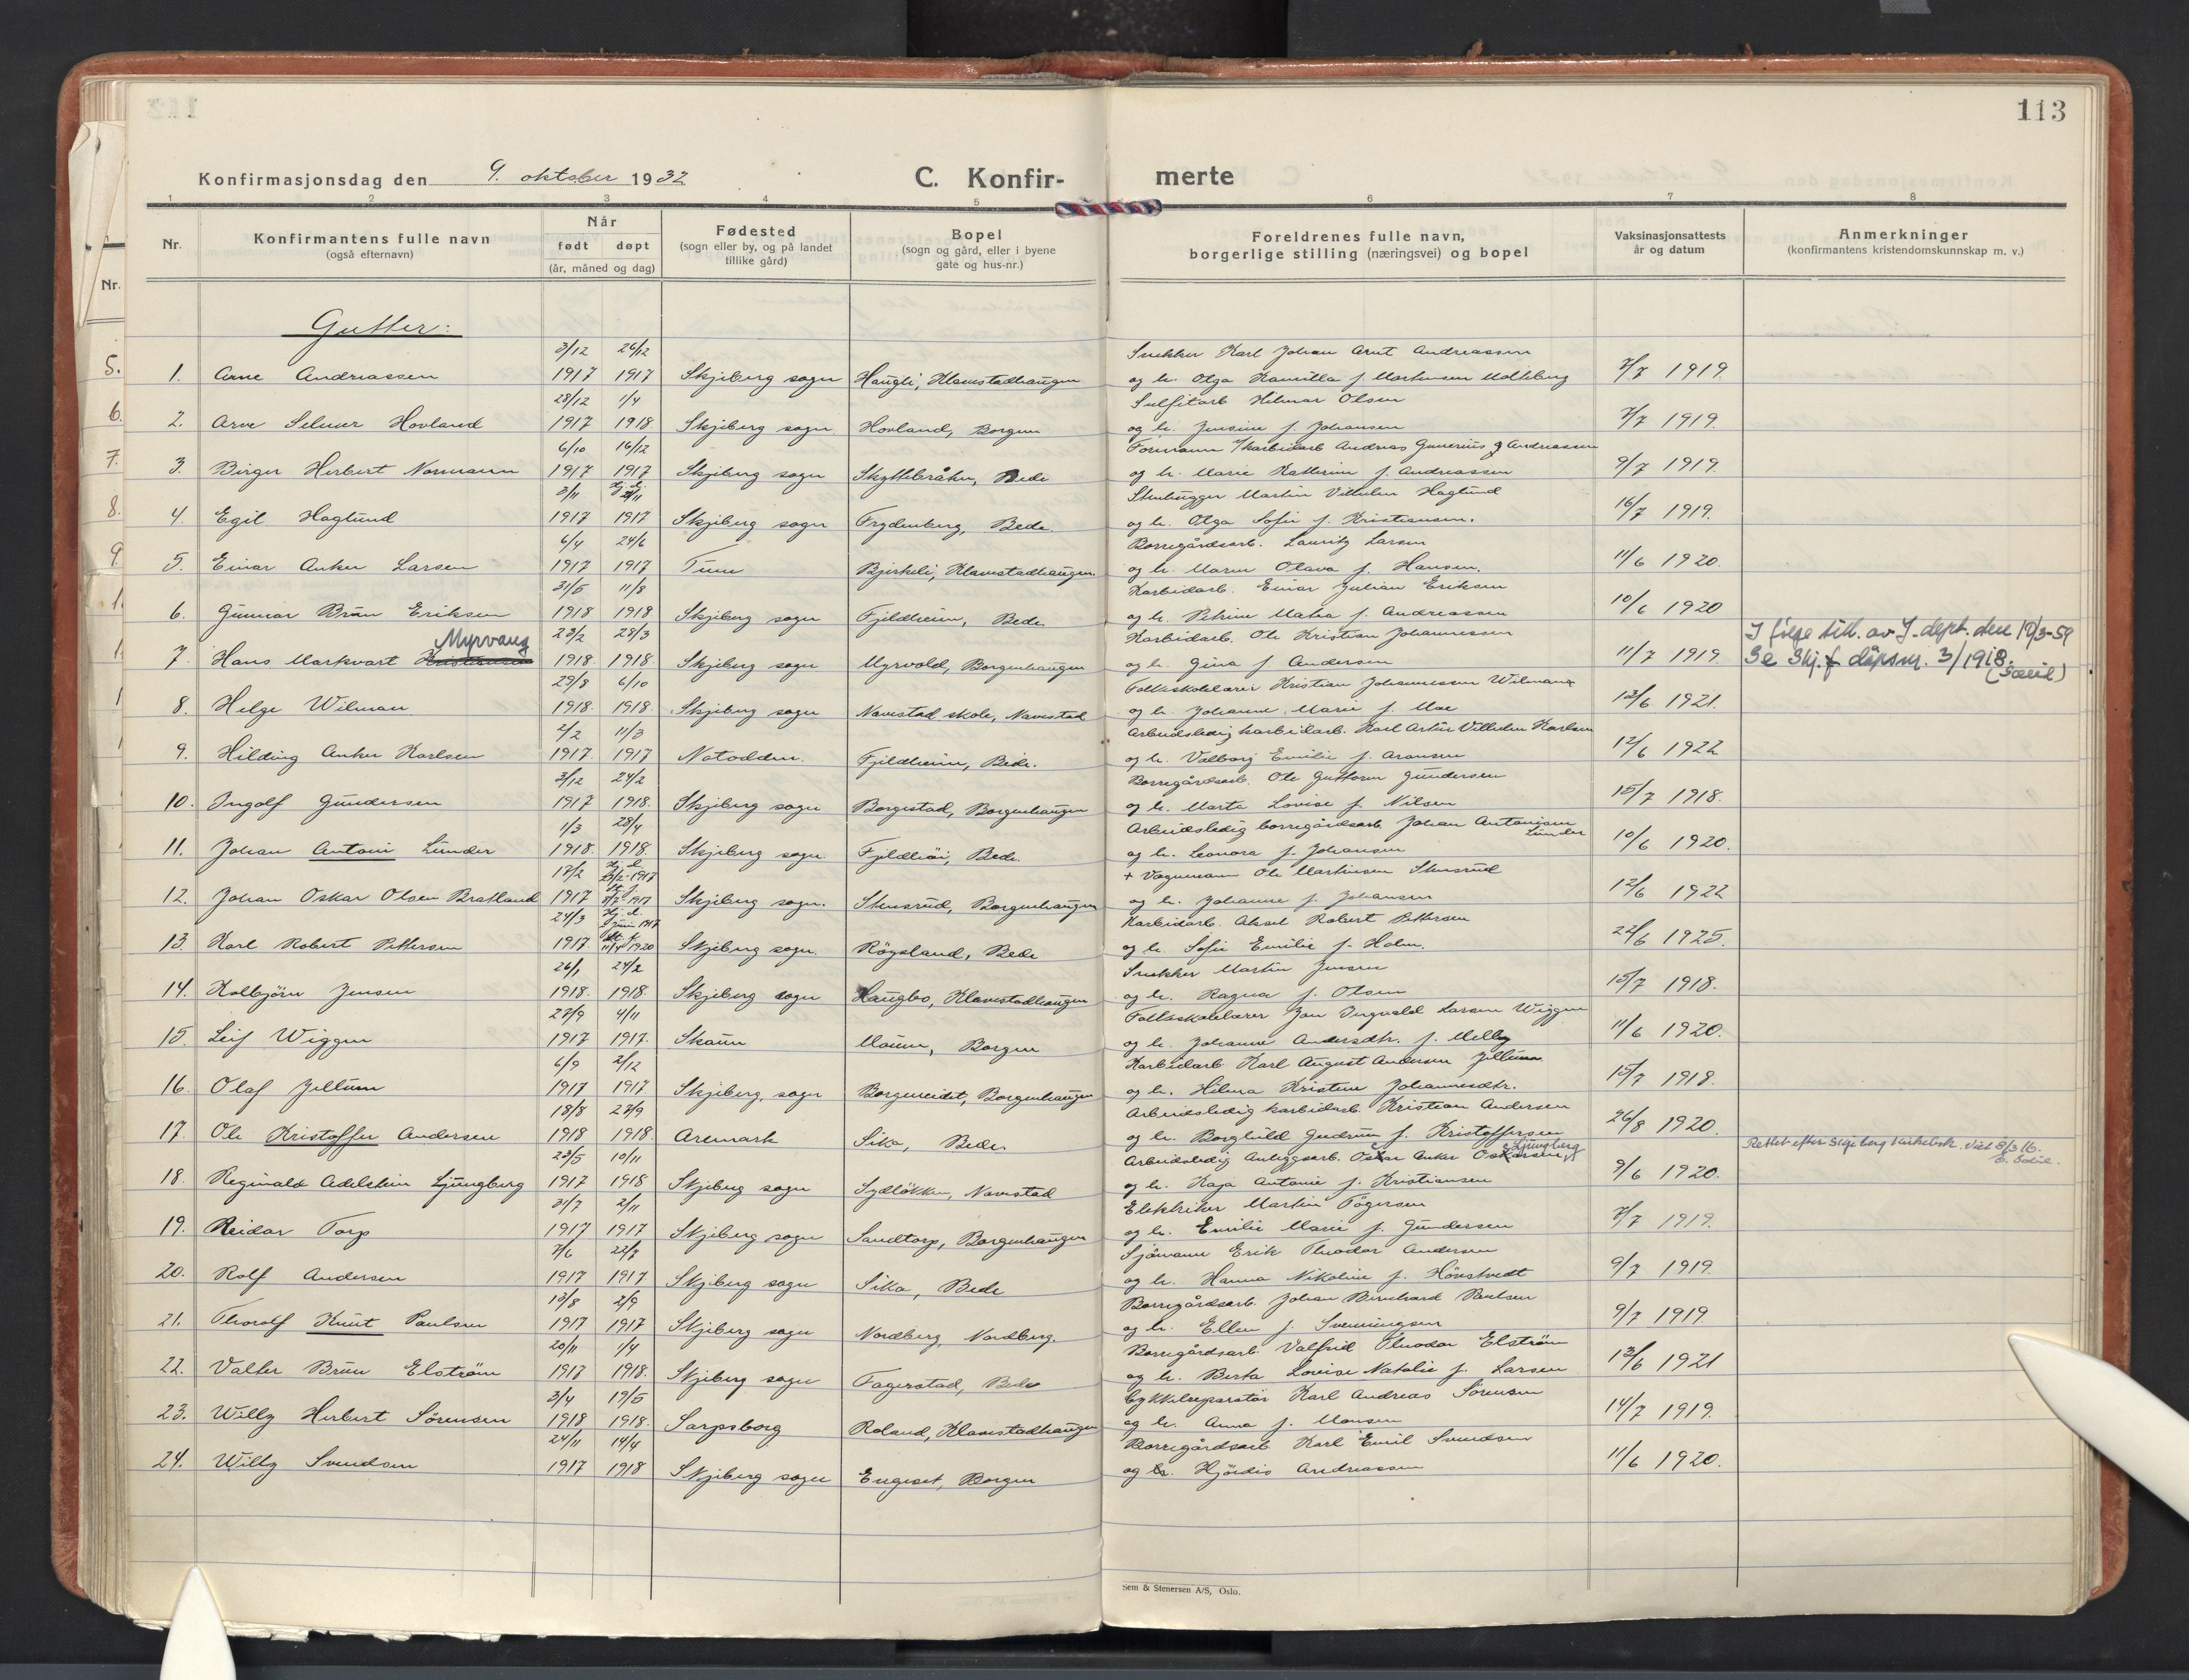 113
Konfirmasjonsdag den 9. oktober 1932
C. Konfir- merte
1 2 3 4 5 6 7 8
Nr.
Konfirmantens fulle navn
(også efternavn)
Når
født døpt
(år, måned og dag)
Fødested
(sogn eller by, og på landet
tillike gård)
Bopel
(sogn og gård, eller i byene
gate og hus-nr.)
Foreldrenes fulle navn,
borgerlige stilling (næringsvei) og bopel
Vaksinasjonsattests
år og datum
Anmerkninger
(konfirmantens kristendomskunnskap m. v.)
Nr.
Gutter:
3/12 26/12 Snekker Karl Johan Arnt Andreassen
1. Arne Andreassen 1917 1917 Skjeberg sogn Haugli, Klavestadhaugen og h. Olga Kamilla f. Martinsen 7/7 1919
28/12 1/4 Sulfitarb Hilmar Olsen
2. Arve Selmer Hovland 1917 1918 Skjeberg sogn Hovland, Borgen og h. Jensine f. Johansen 7/7 1919.
6/10 16/12 Formann karbidarb Andreas Gunerius Andreassen
3. Birger Herbert Normann 1917 1917 Skjeberg sogn Skyttebråten, Bede og h. Marie Katherine f. Andreassen 9/7 1919.
3/11 Hj. d.
4. Egil Haglund 1917 1917 Skjeberg sogn Frydenberg, Bede. og h. Olga Sofie f. Kristiansen. 16/7 1919.
Stenhugger Martin Vilhelm Haglund
6/4 24/6 Borregårdsarb. Lauritz Larsen
5. Einar Anker Larsen 1917 1917 Tune Bjerkeli, Klavestadhaugen. og h. Maren Olava f. Hansen. 11/6 1920.
31/5 11/8 Karbidarb. Einar Julian Eriksen
6. Gunnar Brun Eriksen 1918 1918 Skjeberg sogn Fjeldheim, Bede. og h. Petrine Matea f. Andreassen 10/6 1920
Myrvang 23/2 28/3 Karbidarb. Ole Kristian Johannessen
7. Hans Markvart Kristiansen 1918. 1918. Skjeberg sogn Myrvold, Borgenhaugen og h. Gina f Andersen 11/7 1919.
I følge till. av J-dept. den 17/3-59
Se Skj. f dåpsnr. 3/1918.
29/8 6/10 Folkeskolelærer Kristian Johannessen Wilmann
8. Helge Wilman 1918. 1918. Skjeberg sogn Navestad skole, Navestad og h. Johanne Marie f. Moe 13/6 1921.
2/2 11/3 Arbeidsledig karbidarb. Karl Artur Vilhelm Karlsen
9. Hilding Anker Karlsen 1917. 1917 Notodden. Fjeldheim, Bede. og h. Valborg Emilie f. Aronsen 12/6 1922
3/12 24/2 Borregårdsarb. Ole Guttorm Gundersen
10. Ingolf Gundersen 1917 1918. Skjeberg sogn Borgestad, Borgenhaugen og h. Marta Lovise f. Nilsen 15/7 1918.
1/3 28/4 Arbeidsledig borregårdsarb. Johan Antonisen Lunder
11. Johan Antoni Lunder 1918. 1918. Skjeberg sogn. Fjeldhöi, Bede. og h. Leonora f. Johansen 10/6 1920.
17/2 Hj. d. 1917 + Vognmann Ole Martinsen Stensrud
12. Johan Oskar Olsen Bratland 1917 1917 Skjeberg sogn. Stensrud, Borgenhaugen og h. Johanne f. Johansen 12/6 1922
24/3 Hj. d. juni 1917 Karbidarb. Aksel Robert Pettersen
13 Karl Robert Pettersen 1917. 11/4 1920 Skjeberg sogn. Rögsland, Bede og h. Sofie Emilie f. Holm. 22/6 1925.
26/1 24/2 Snekker Martin Jensen
14. Kolbjörn Jensen 1918. 1918. Skjeberg sogn Haugbo, Klavestadhaugen og h. Ragna f. Olsen 15/7 1918.
27/9 4/11 Folkeskolelærer Jon Ingvald Larsen Wiggen
15. Leif Wiggen 1917 1917. Skaun Moum, Borgen og h. Johanne Andersdtr. f. Melby 11/6 1920.
6/9 2/12 Karbidarb. Karl August Andersen Jellum
16. Olaf Jellum 1917 1917. Skjeberg sogn Borgeneidet, Borgenhaugen og h. Helma Kristine Johannesdtr. 15/7 1918.
18/8 27/9 Arbeidsledig karbidarb. Kristian Andersen
17. Ole Kristoffer Andersen 1918 1918. Aremark Sika, Bede. og h. Borghild Gudrun f. Kristoffersen 26/8 1920.
23/5 10/11 Arbeidsledig Anleggsarb. Oskar Anker Oskarsen Ljungberg
18. Reginald Adelstein Ljungberg 1917 1918 Skjeberg sogn Sydløkken, Navestad og h. Kaja Antonie f. Kristiansen 9/6 1920.
Rettet efter Skjeberg kirkebok.
31/7 2/11 Elektriker Martin Tögersen
19. Reidar Torp 1917 1917 Skjeberg sogn Sandtorp, Borgenhaugen og h. Emilie Marie f. Gundersen 7/7 1919.
7/6 22/7 Sjömann Erik Theodor Andersen
20. Rolf Andersen 1917 1917 Skjeberg sogn Sika, Bede og h. Hanna Nikoline f. Hönstvedt 9/7 1919.
13/8 2/9 Borregårdsarb. Johan Bernhard Paulsen
21. Thorolf Knut Paulsen 1917 1917 Skjeberg sogn Nordberg, Nordberg. og h. Ellen f. Svenningsen 9/7 1919.
20/11 1/4 Borregårdsarb. Valfrid Theodor Elström
22. Valter Brun Elström 1917 1918. Skjeberg sogn Fagerstad, Bede og h. Berta Lovise Natalie f. Larsen 13/6 1921
3/4 19/5 Cykkelreparatör Karl Andreas Sörensen
23. Willy Herbert Sörensen 1918 1918. Sarpsborg Roland, Klavestadhaugen og h. Anna f. Monsen 14/7 1919.
24/11 14/4 Borregårdsarb Karl Emil Svendsen
24. Willy Svendsen 1917 1918 Skjeberg sogn Engeset, Borgen og h. Hjördis Andreassen 11/6 1920.
Sem & Stenersen A/S, Oslo.